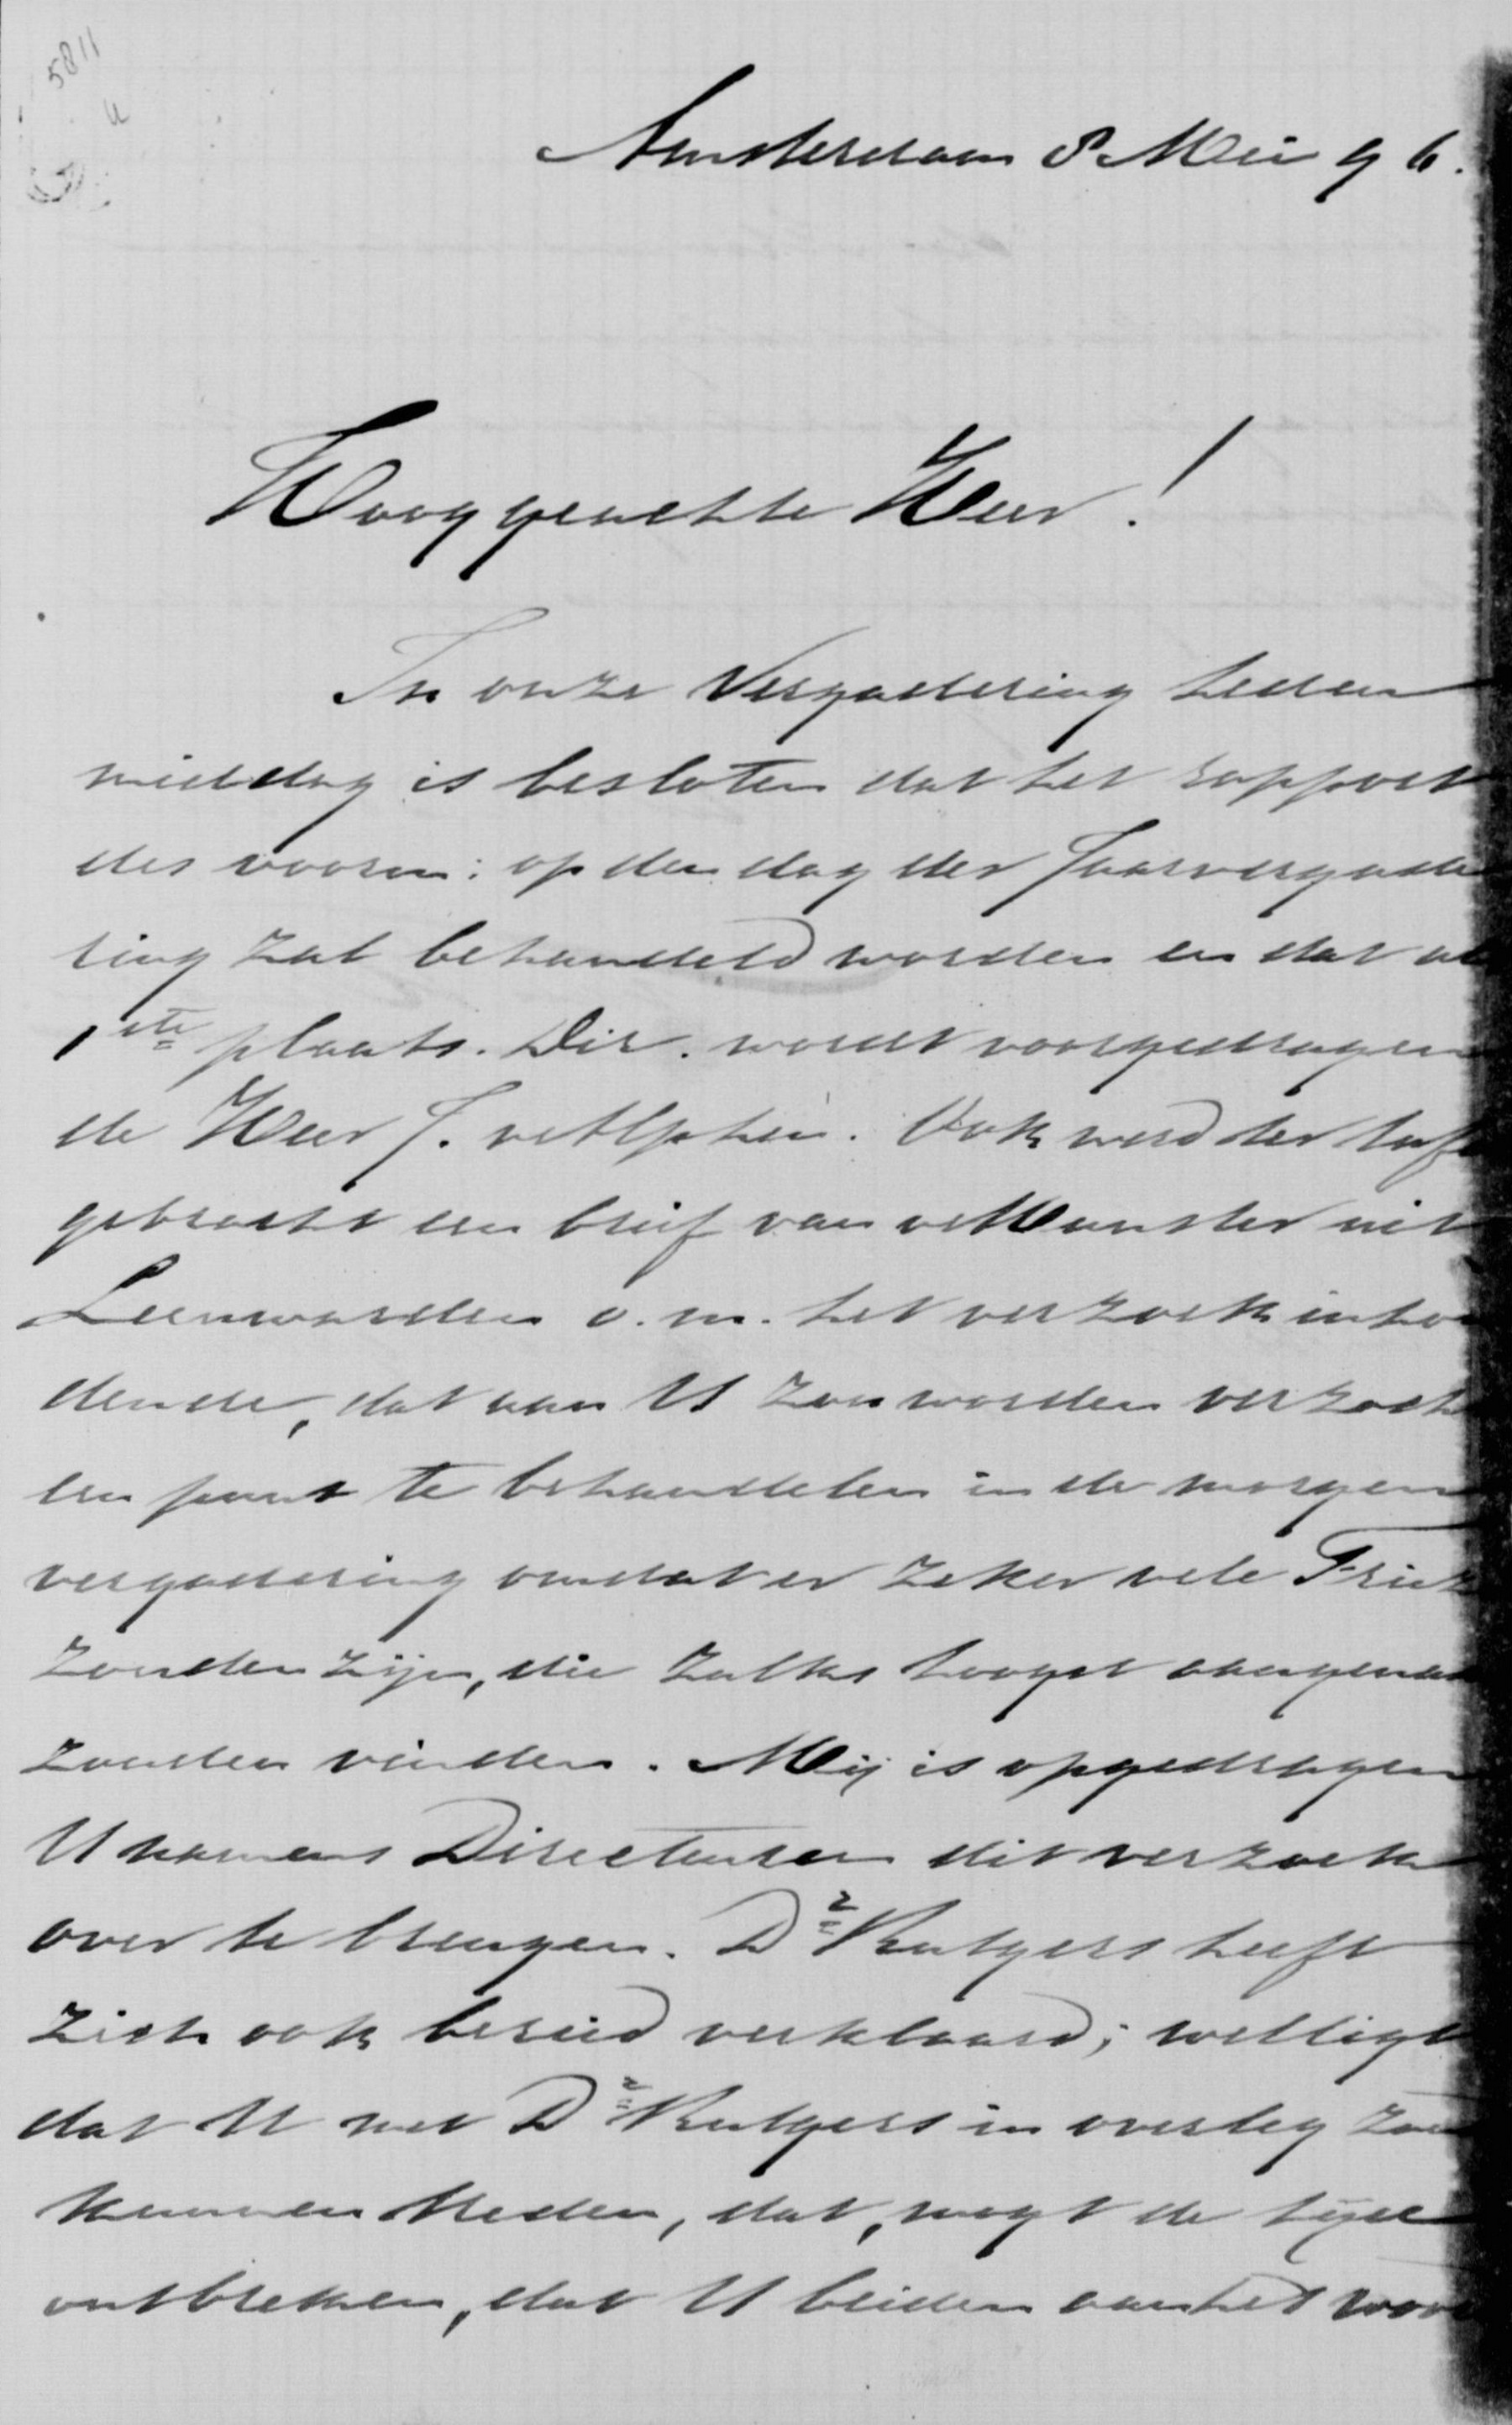 5811
Amsterdam 8 Mei 96.
Hooggeachte Heer!
In onze Vergadering heden
middag is besloten dat het rapport
des voorm: op den dag der Jaarvergade
ring zal behandeld worden en dat al
1ste plaats. Dir. wordt voorgedragen
de Heer J. v Alphen. Ook werd ter tafe
gebracht een brief van v Munster uit
Leeuwarden o.m. het verzoek inhou
dende, dat aan U zou worden verzocht
een punt te behandelen in de morgen
vergadering omdat er zeker vele Friez
zouden zijn, die zulks hoogst aangenaa
zouden vinden. Mij is opgedragen
U namens Directeuren dit verzoek
over te brengen. Dr Rutgers heeft
zich ook bereid verklaard; welligt
dat U met Dr Rutgers in overleg zou
kunnen treden, dat, mogt de tijd
ontbreken, dat U beiden aan het woor